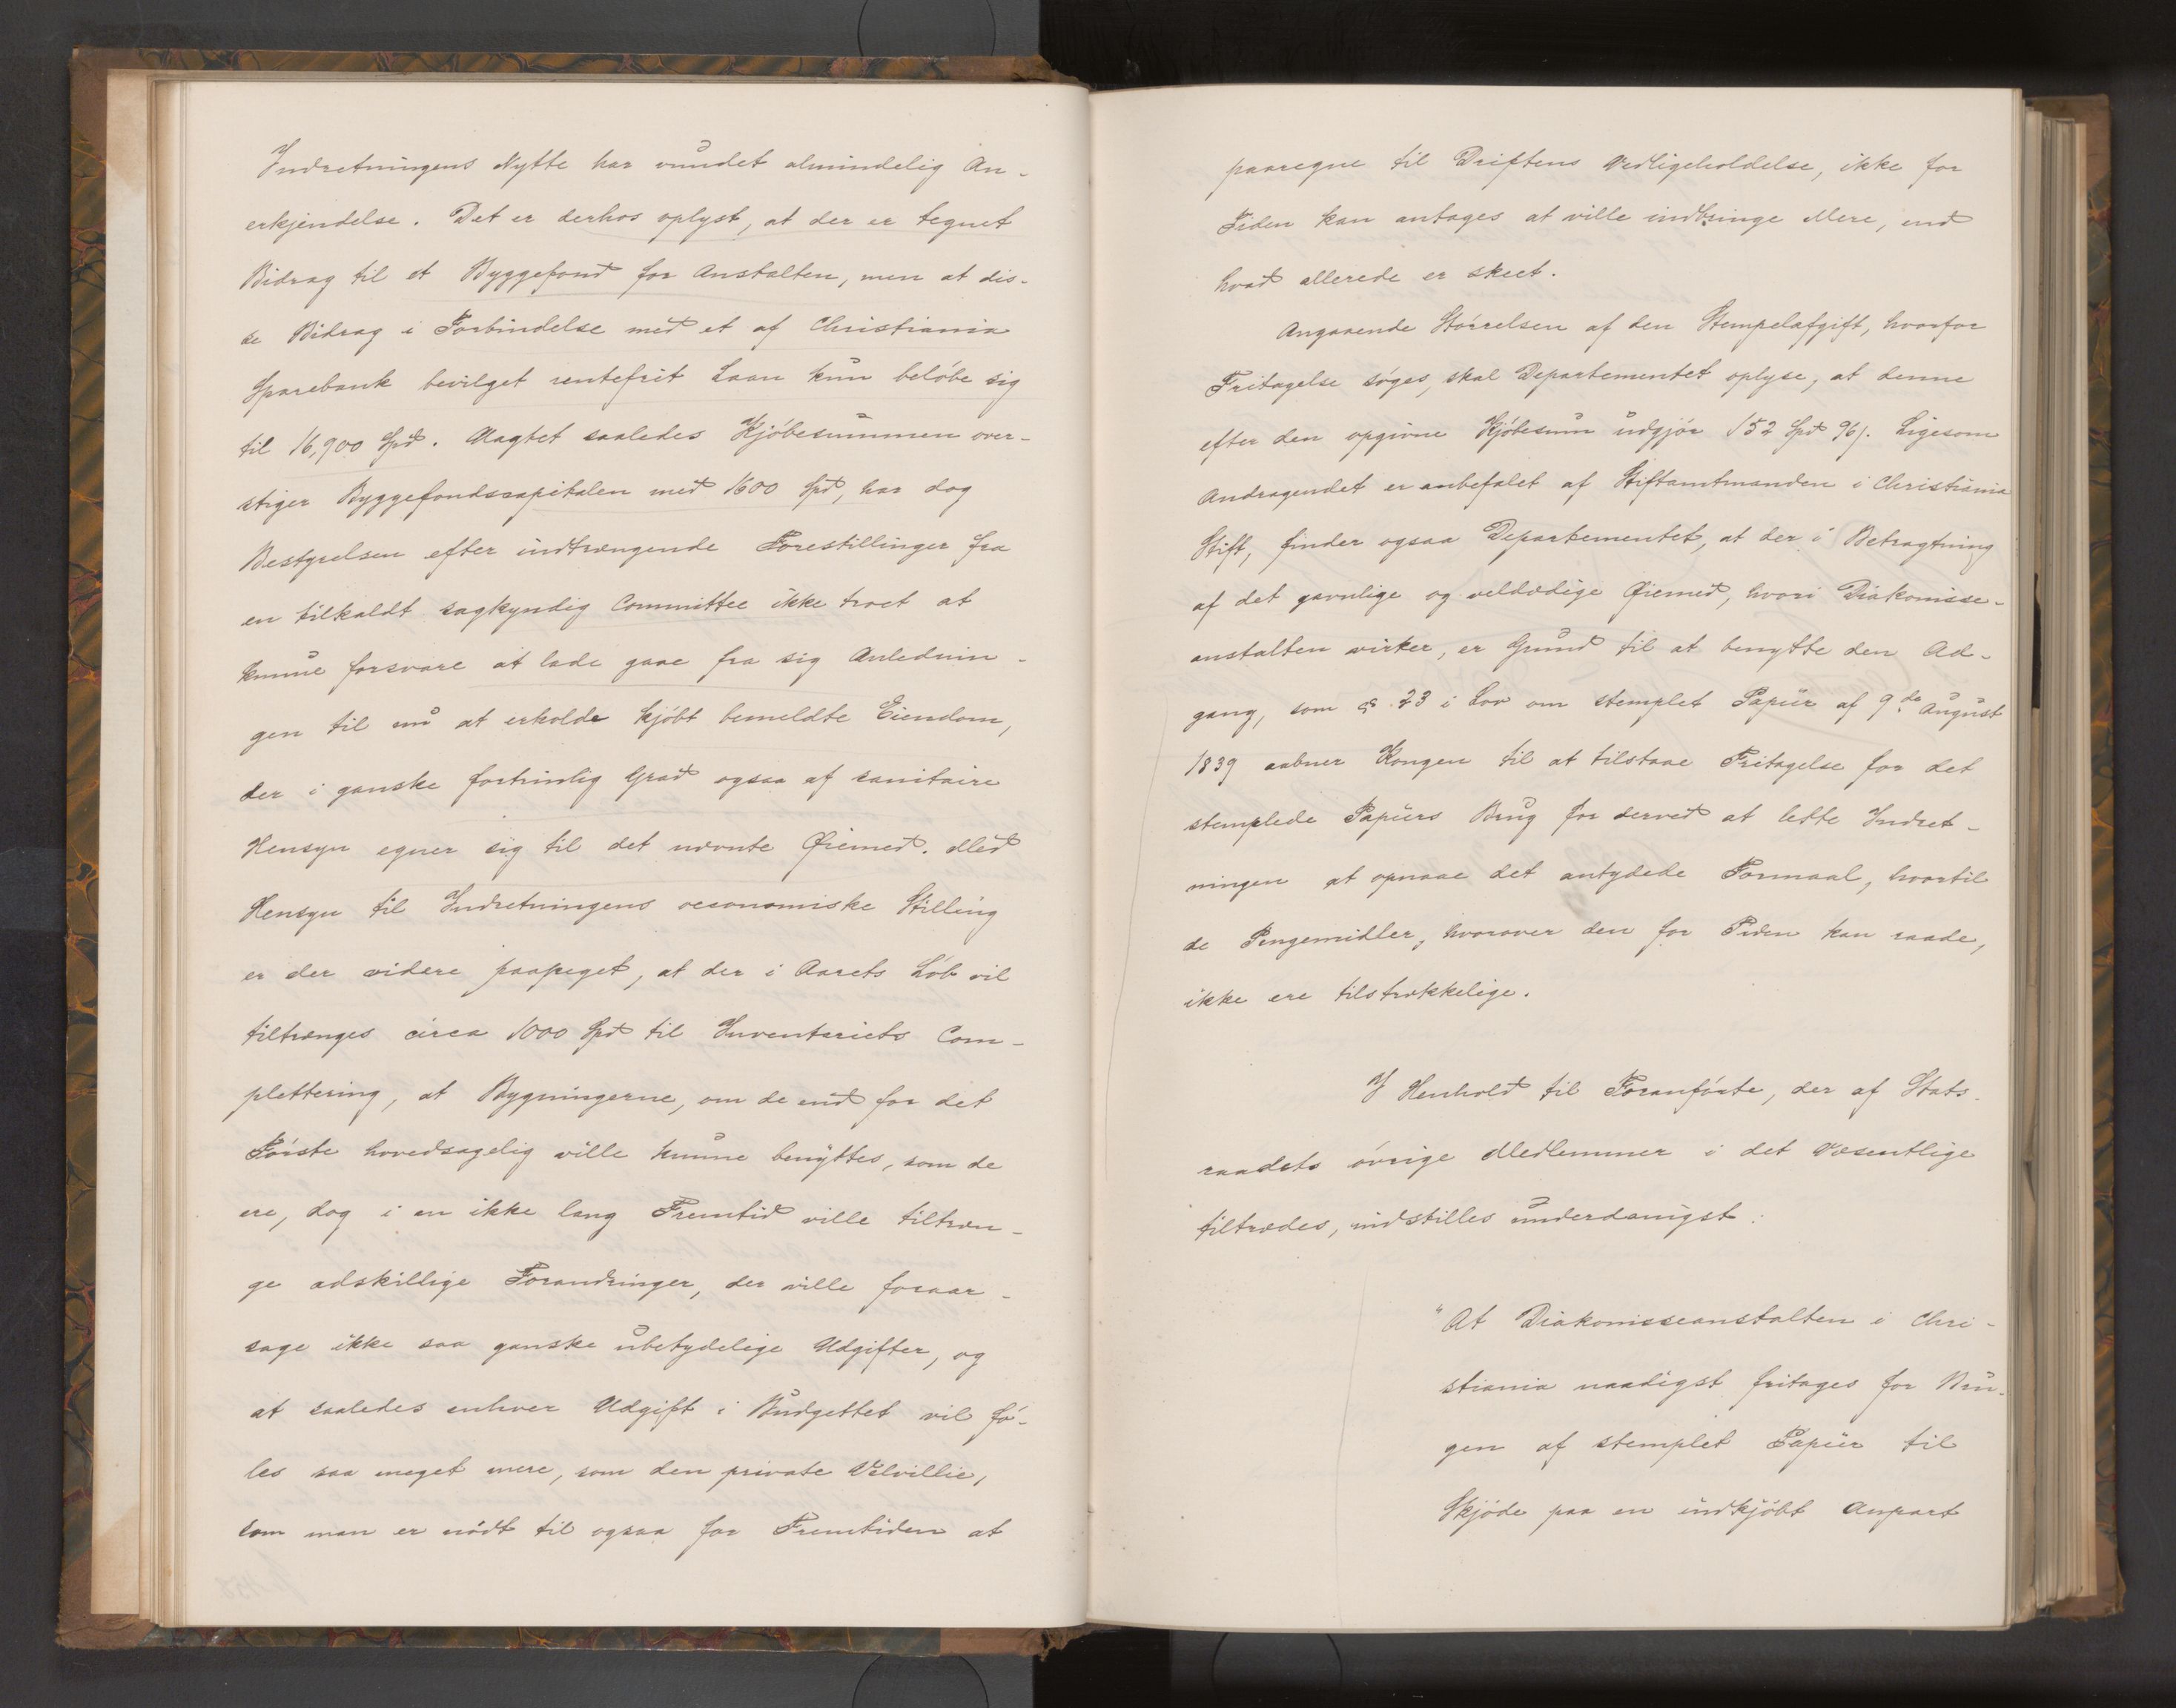 Indretningens Nytte har vundet almindelig An-
erkjendelse. Det er derhos oplyst, at der er tegnet
Bidrag til et Byggefond for Anstalten, men at dis-
se Bidrag i Forbindelse med et af Christiania
Sparebank bevilget rentefrit Laan kun beløbe sig
til 16,900 Spd. Uagtet saaledes Kjøbesummen over-
stiger Byggefondscapitalen med 1600 Spd, har dog
Bestyrelsen efter indtrængende Forestillinger fra
en tilkaldt sagkyndig Committee ikke troet at
kunne forsvare at lade gaae fra sig Anlednin-
gen til nu at erholde kjøbt bemeldte Eiendom,
der i ganske fortrinlig Grad ogsaa af sanitaire
Hensyn egner sig til det nævnte Øiemed. Med
Hensyn til Indretningens oeconomiske Stilling
er der videre paapeget, at der i Aarets Løb vil
tiltrænges circa 1000 Spd til Inventariets Com-
plettering, at Bygningerne, om de end for det
Første hovedsagelig ville kunne benyttes, som de
ere, dog i en ikke lang Fremtid ville tiltræn-
ge adskillige Forandringer, der ville foraar-
sage ikke saa ganske ubetydelige Udgifter, og
at saaledes enhver Udgift i Budgettet vil fø-
les saa meget mere, som den private Velvillie,
som man er nødt til ogsaa for Fremtiden at
paaregne til Driftens Vedligeholdelse, ikke for
Tiden kan antages at ville indbringe Mere, end
hvad allerede er skeet.
Angaaende Størrelsen af den Stempelafgift, hvorfor
Fritagelse søges, skal Departementet oplyse, at denne
efter den opgivne Kjøbesum udgjør 152 Spd 96 s. Ligesom
Andragendet er anbefalet af Stiftamtmanden i Christiania
Stift, finder ogsaa Departementet, at der i Betragtning
af det gavnlige og veldædige Øiemed, hvori Diakonisse-
anstalten virker, er Grund til at benytte den Ad-
gang, som § 23 i Lov om stemplet Papiir af 9de August
1839 aabner Kongen til at tilstaae Fritagelse for det
stemplede Papiirs Brug for derved at lette Indret-
ningen at opnaae det antydede Formaal, hvortil
de Pengemidler, hvorover den for Tiden kan raade,
ikke ere tilstrækkelige.
I Henhold til Foranførte, der af Stats-
raadets øvrige Medlemmer i det Væsentlige
tiltrædes, indstilles underdanigst:
"At Diakonisseanstalten i Chri-
stiania naadigst fritages for Bru-
gen af stemplet Papiir til
Skjøde paa en indkjøbt Anpart